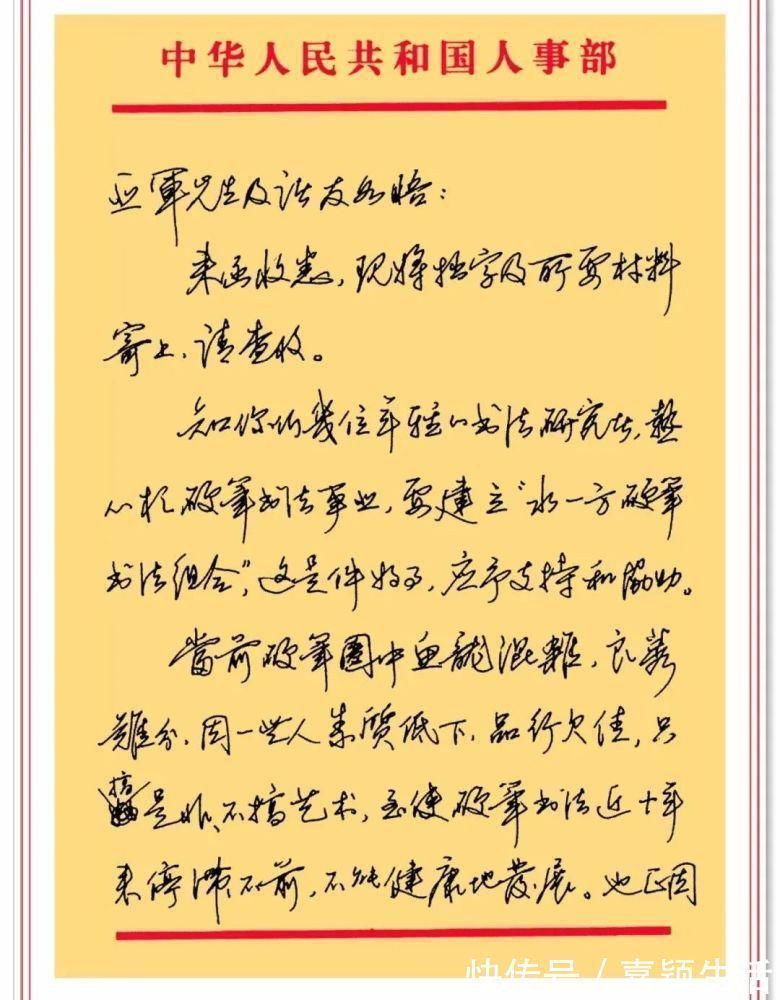 中华人民共和国人事部
亚軍先生及诸友如晤：
来函收悉，现将拙字及所要材料
寄上，请查收。
知你们幾位年轻的书法研究生，热
心于硬筆书法事业，要建立“水一方硬筆
书法组合”，这是件好事，应予支持和协助。
當前硬筆圈中鱼龍混雜，良莠
難分，因一些人素質低下，品行欠佳，只
搞是非，不搞艺术，至使硬筆书法近十年
来停滞不前，不能健康地發展。也正因
快传号 / 嘉颖生活